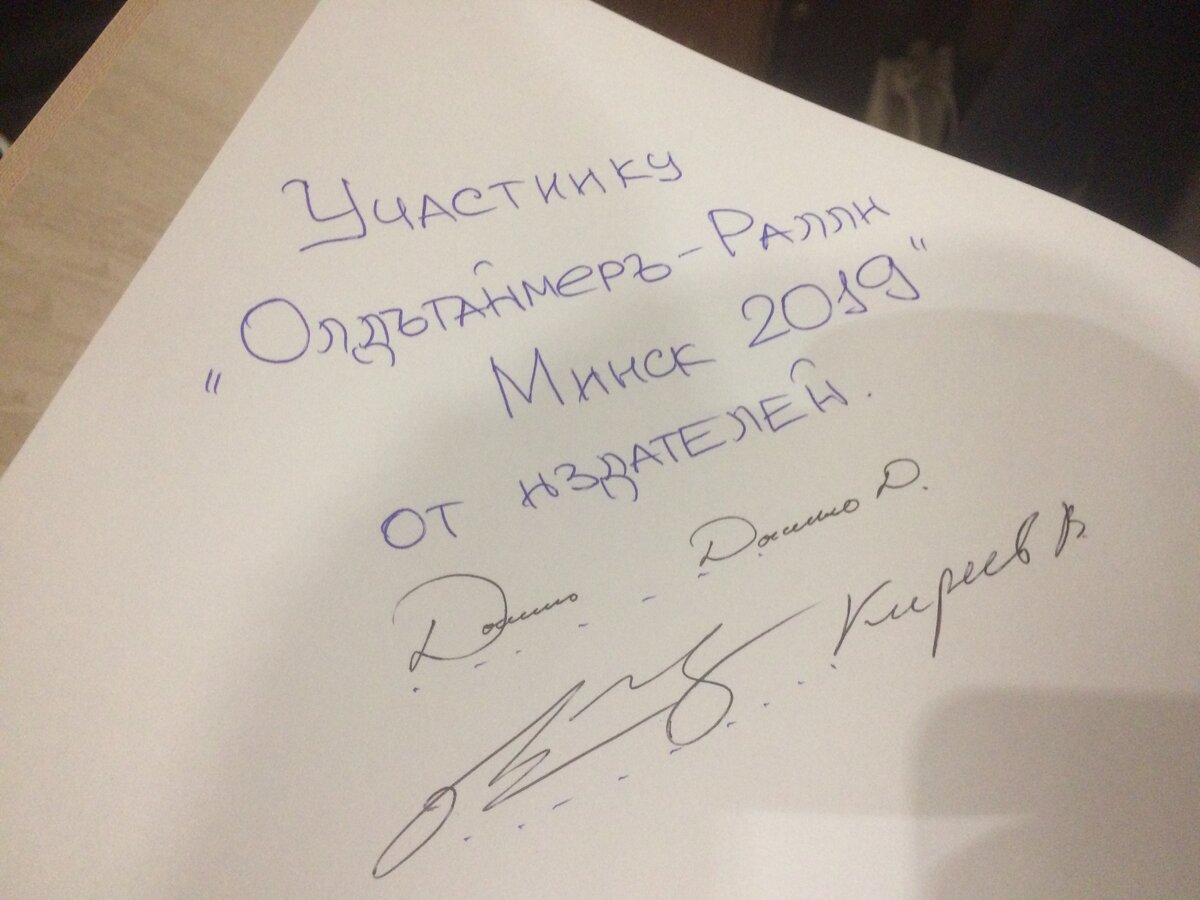 Участнику
"Олдътаймеръ-Ралли
Минск 2019"
от издателей.
Д.
Киреев В